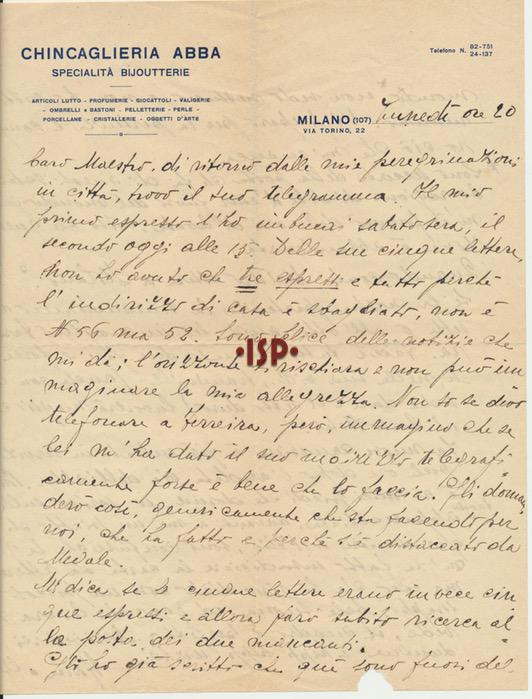 CHINCAGLIERIA ABBA
SPECIALITÀ BIJOUTTERIE
ARTICOLI LUTTO - PROFUMERIE - GIOCATTOLI - VALIGERIE
- OMBRELLI e BASTONI - PELLETTERIE - PERLE -
PORCELLANE - CRISTALLERIE - OGGETTI D'ARTE
Telefono N. 82-751
24-137
MILANO (107) Lunedì ore 20
VIA TORINO, 22
Caro Maestro, di ritorno dalle mie peregrinazioni
in città, trovo il suo telegramma. Il mio
primo espresso l'ho imbucai sabato sera, il
secondo oggi alle 15. Delle sue cinque lettere,
non ho avuto che tre espressi e tutto perché
l'indirizzo di casa è sbagliato, non è
N 56 ma 52. Sono felice delle notizie che
mi dà; l'orizzonte si rischiara e non può im
maginare la mia allegrezza. Non so se devo
telefonare a Ferreira, però, immagino che se
lei m'ha dato il suo indirizzo telegrafi
camente forse è bene che lo faccia. Gli doman
derò così, genericamente che sta facendo per
noi, che ha fatto e perché s'è distaccato da
Medale.
Mi dica se le cinque lettere erano invece cin
que espressi e allora farò subito ricerca al
la posta dei due mancanti.
Gli ho già scritto che qui sono fuori del
·ISP·